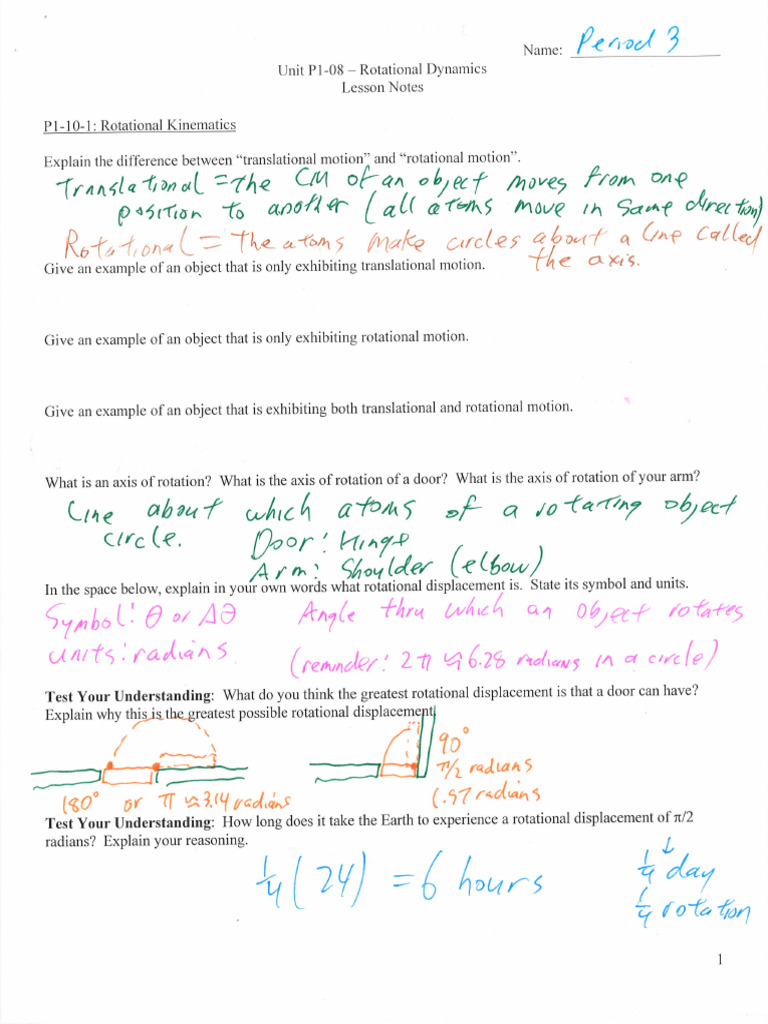 Name: Period 3
Unit P1-08 – Rotational Dynamics
Lesson Notes
P1-10-1: Rotational Kinematics
Explain the difference between “translational motion” and “rotational motion”.
Translational = The CM of an object moves from one
position to another (all atoms move in same direction)
Rotational = The atoms make circles about a line called
the axis.
Give an example of an object that is only exhibiting translational motion.
Give an example of an object that is only exhibiting rotational motion.
Give an example of an object that is exhibiting both translational and rotational motion.
What is an axis of rotation? What is the axis of rotation of a door? What is the axis of rotation of your arm?
Line about which atoms of a rotating object
circle. Door: Hinge
Arm: Shoulder (elbow)
In the space below, explain in your own words what rotational displacement is. State its symbol and units.
Symbol: θ or Δθ Angle thru which an object rotates
units: radians (reminder: 2π ≈ 6.28 radians in a circle)
Test Your Understanding: What do you think the greatest rotational displacement is that a door can have?
Explain why this is the greatest possible rotational displacement.
90°
π/2 radians
180° or π ≈ 3.14 radians
1.57 radians
Test Your Understanding: How long does it take the Earth to experience a rotational displacement of π/2
radians? Explain your reasoning.
1/4 (24) = 6 hours
1/4 day
1/4 rotation
1